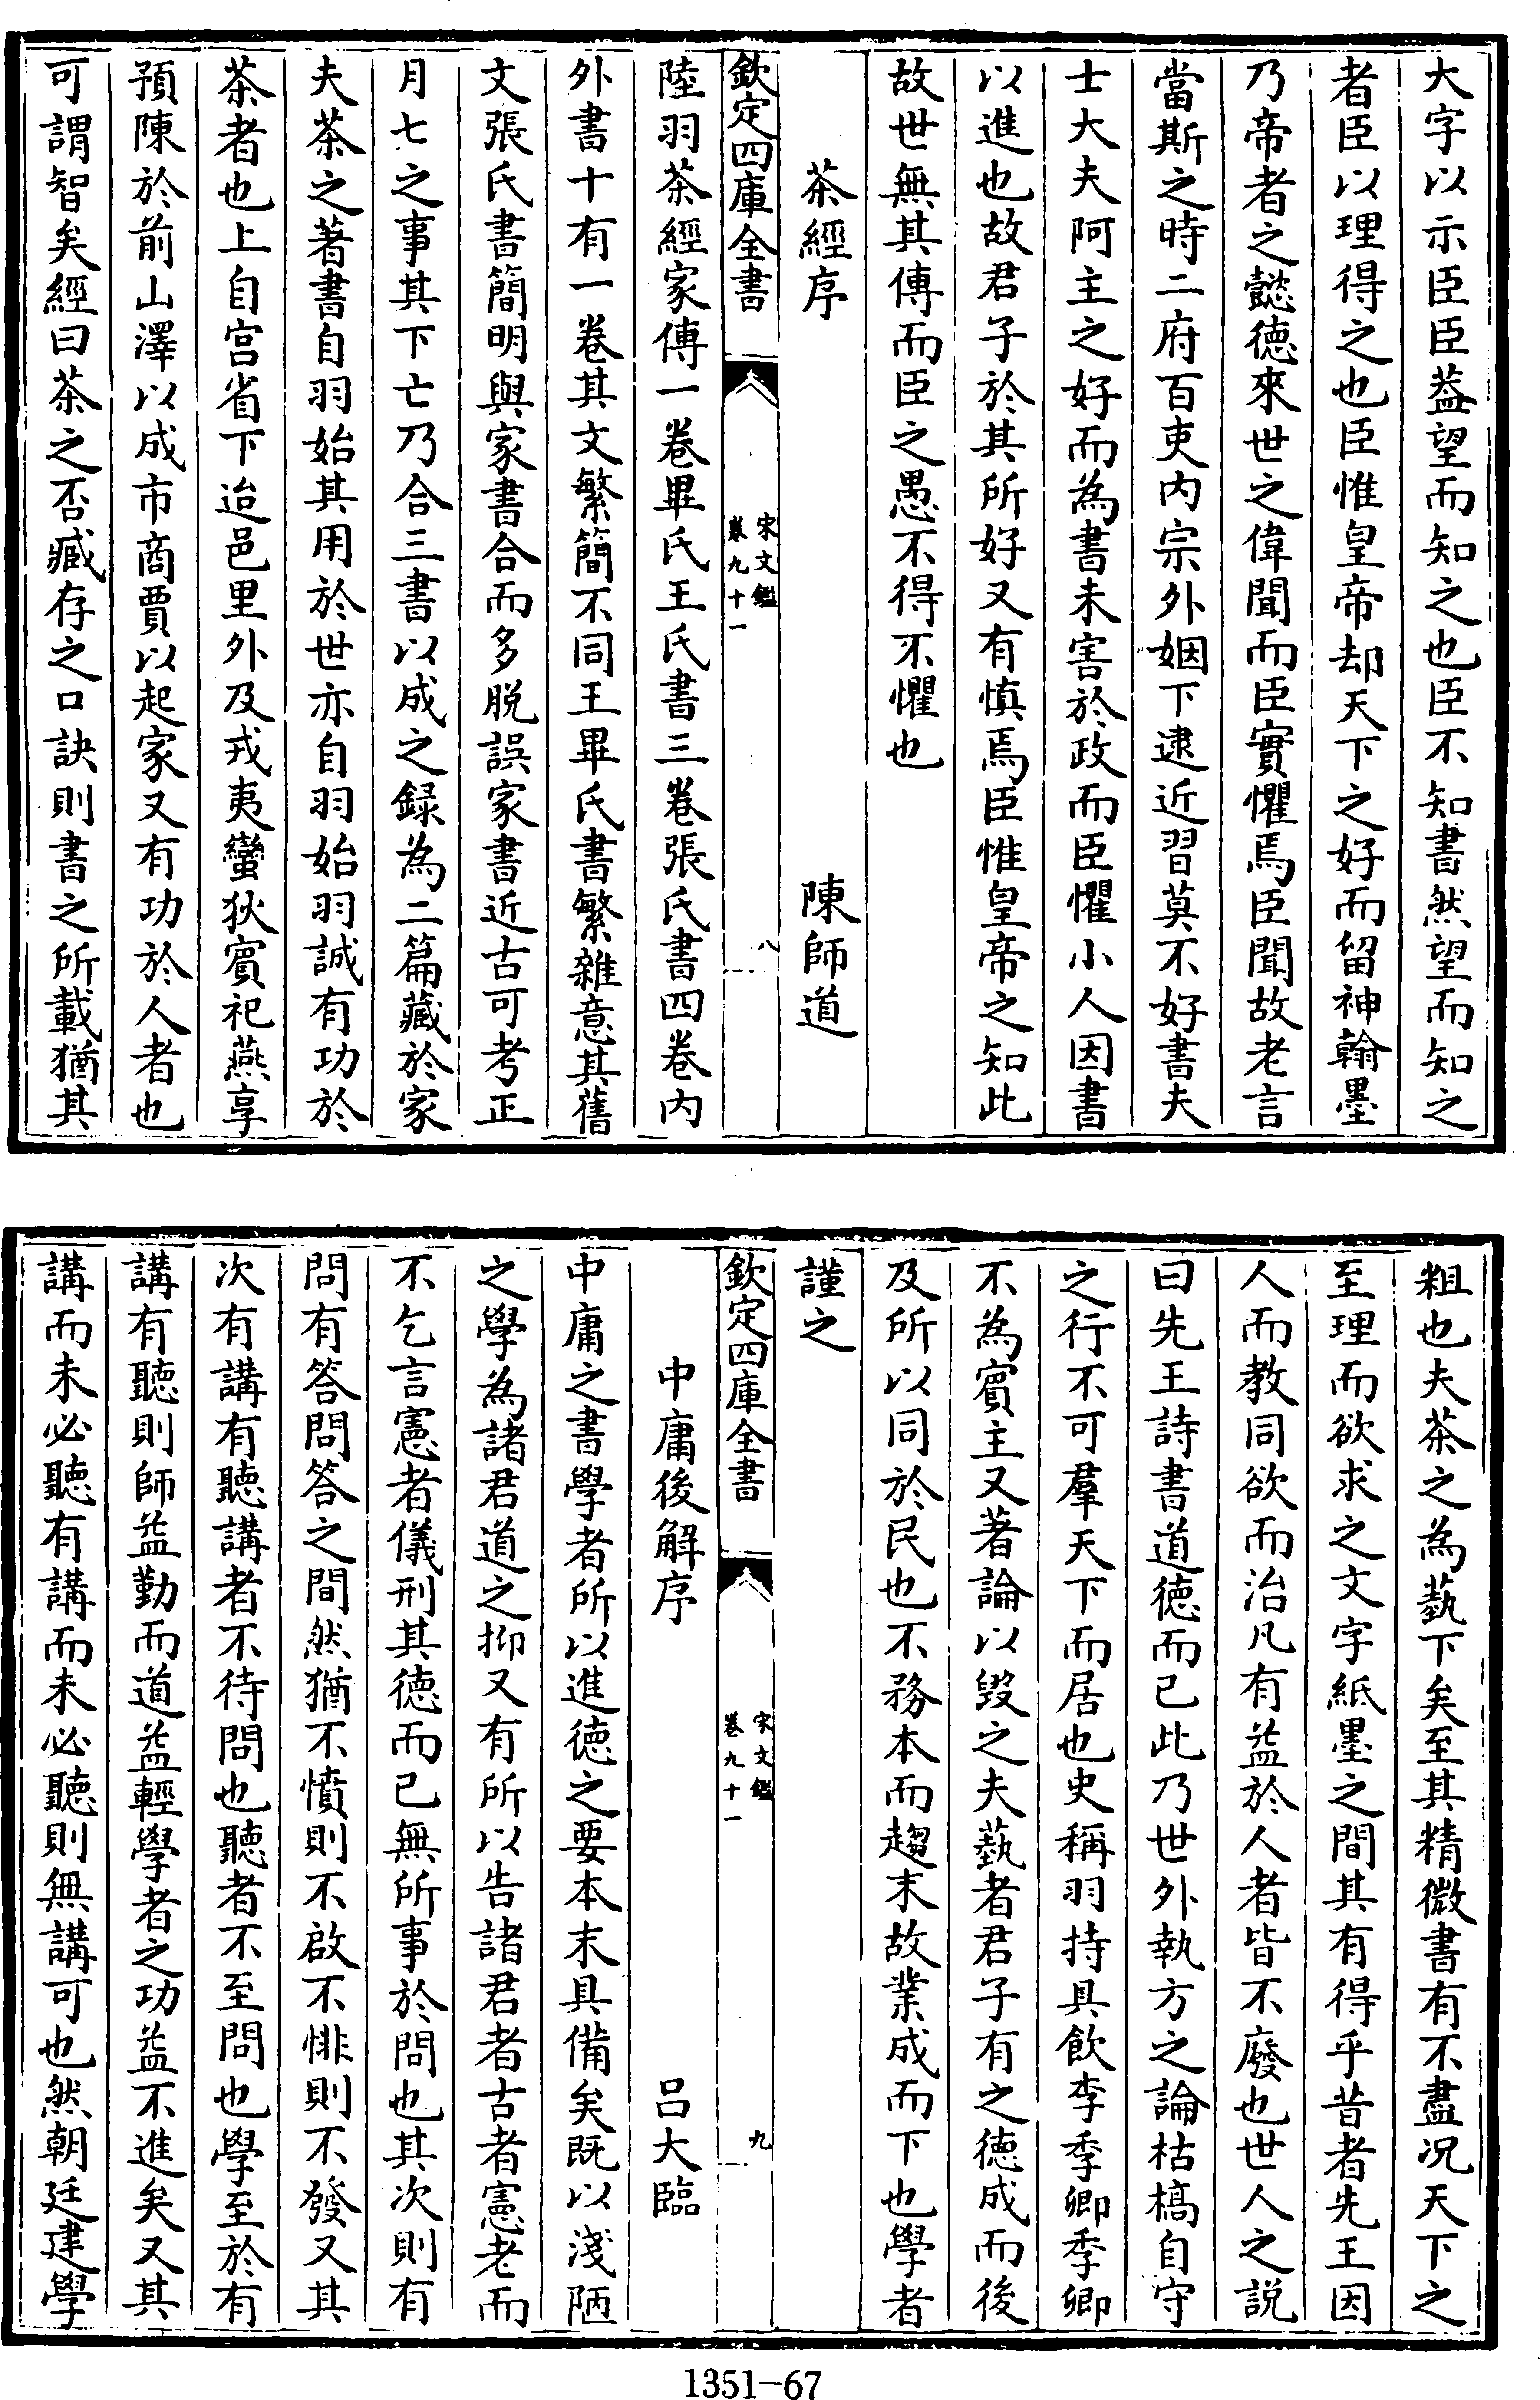 大字以示臣臣葢望而知之也臣不知書然望而知之
者臣以理得之也臣惟皇帝却天下之好而留神翰墨
乃帝者之懿徳來世之偉聞而臣實懼焉臣聞故老言
當斯之時二府百吏内宗外姻下逮近習莫不好書夫
士大夫阿主之好而為書未害於政而臣懼小人因書
以進也故君子於其所好又有慎焉臣惟皇帝之知此
故世無其傳而臣之愚不得不懼也
茶經序 陳師道
欽定四庫全書 宋文鑑 卷九十一 八
陸羽茶經家傳一卷畢氏王氏書三卷張氏書四卷内
外書十有一卷其文繁簡不同王畢氏書繁雜意其舊
文張氏書簡明與家書合而多脱誤家書近古可考正
月七之事其下亡乃合三書以成之録為二篇藏於家
夫茶之著書自羽始其用於世亦自羽始羽誠有功於
茶者也上自宫省下迨邑里外及戎夷蠻狄賓祀燕享
預陳於前山澤以成市商賈以起家又有功於人者也
可謂智矣經曰茶之否臧存之口訣則書之所載猶其
粗也夫茶之為藝下矣至其精微書有不盡況天下之
至理而欲求之文字紙墨之間其有得乎昔者先王因
人而教同欲而治凡有益於人者皆不廢也世人之說
曰先王詩書道徳而已此乃世外執方之論枯槁自守
之行不可羣天下而居也史稱羽持具飲李季卿季卿
不為賓主又著論以毀之夫藝者君子有之徳成而後
及所以同於民也不務本而趨末故業成而下也學者
謹之
欽定四庫全書 宋文鑑 卷九十一 九
中庸後解序 吕大臨
中庸之書學者所以進徳之要本末具備矣既以淺陋
之學為諸君道之抑又有所以告諸君者古者憲老而
不乞言憲者儀刑其徳而已無所事於問也其次則有
問有答問答之間然猶不憤則不啟不悱則不發又其
次有講有聽講者不待問也聽者不至問也學至於有
講有聽則師益勤而道益輕學者之功益不進矣又其
講而未必聽有講而未必聽則無講可也然朝廷建學
1351-67